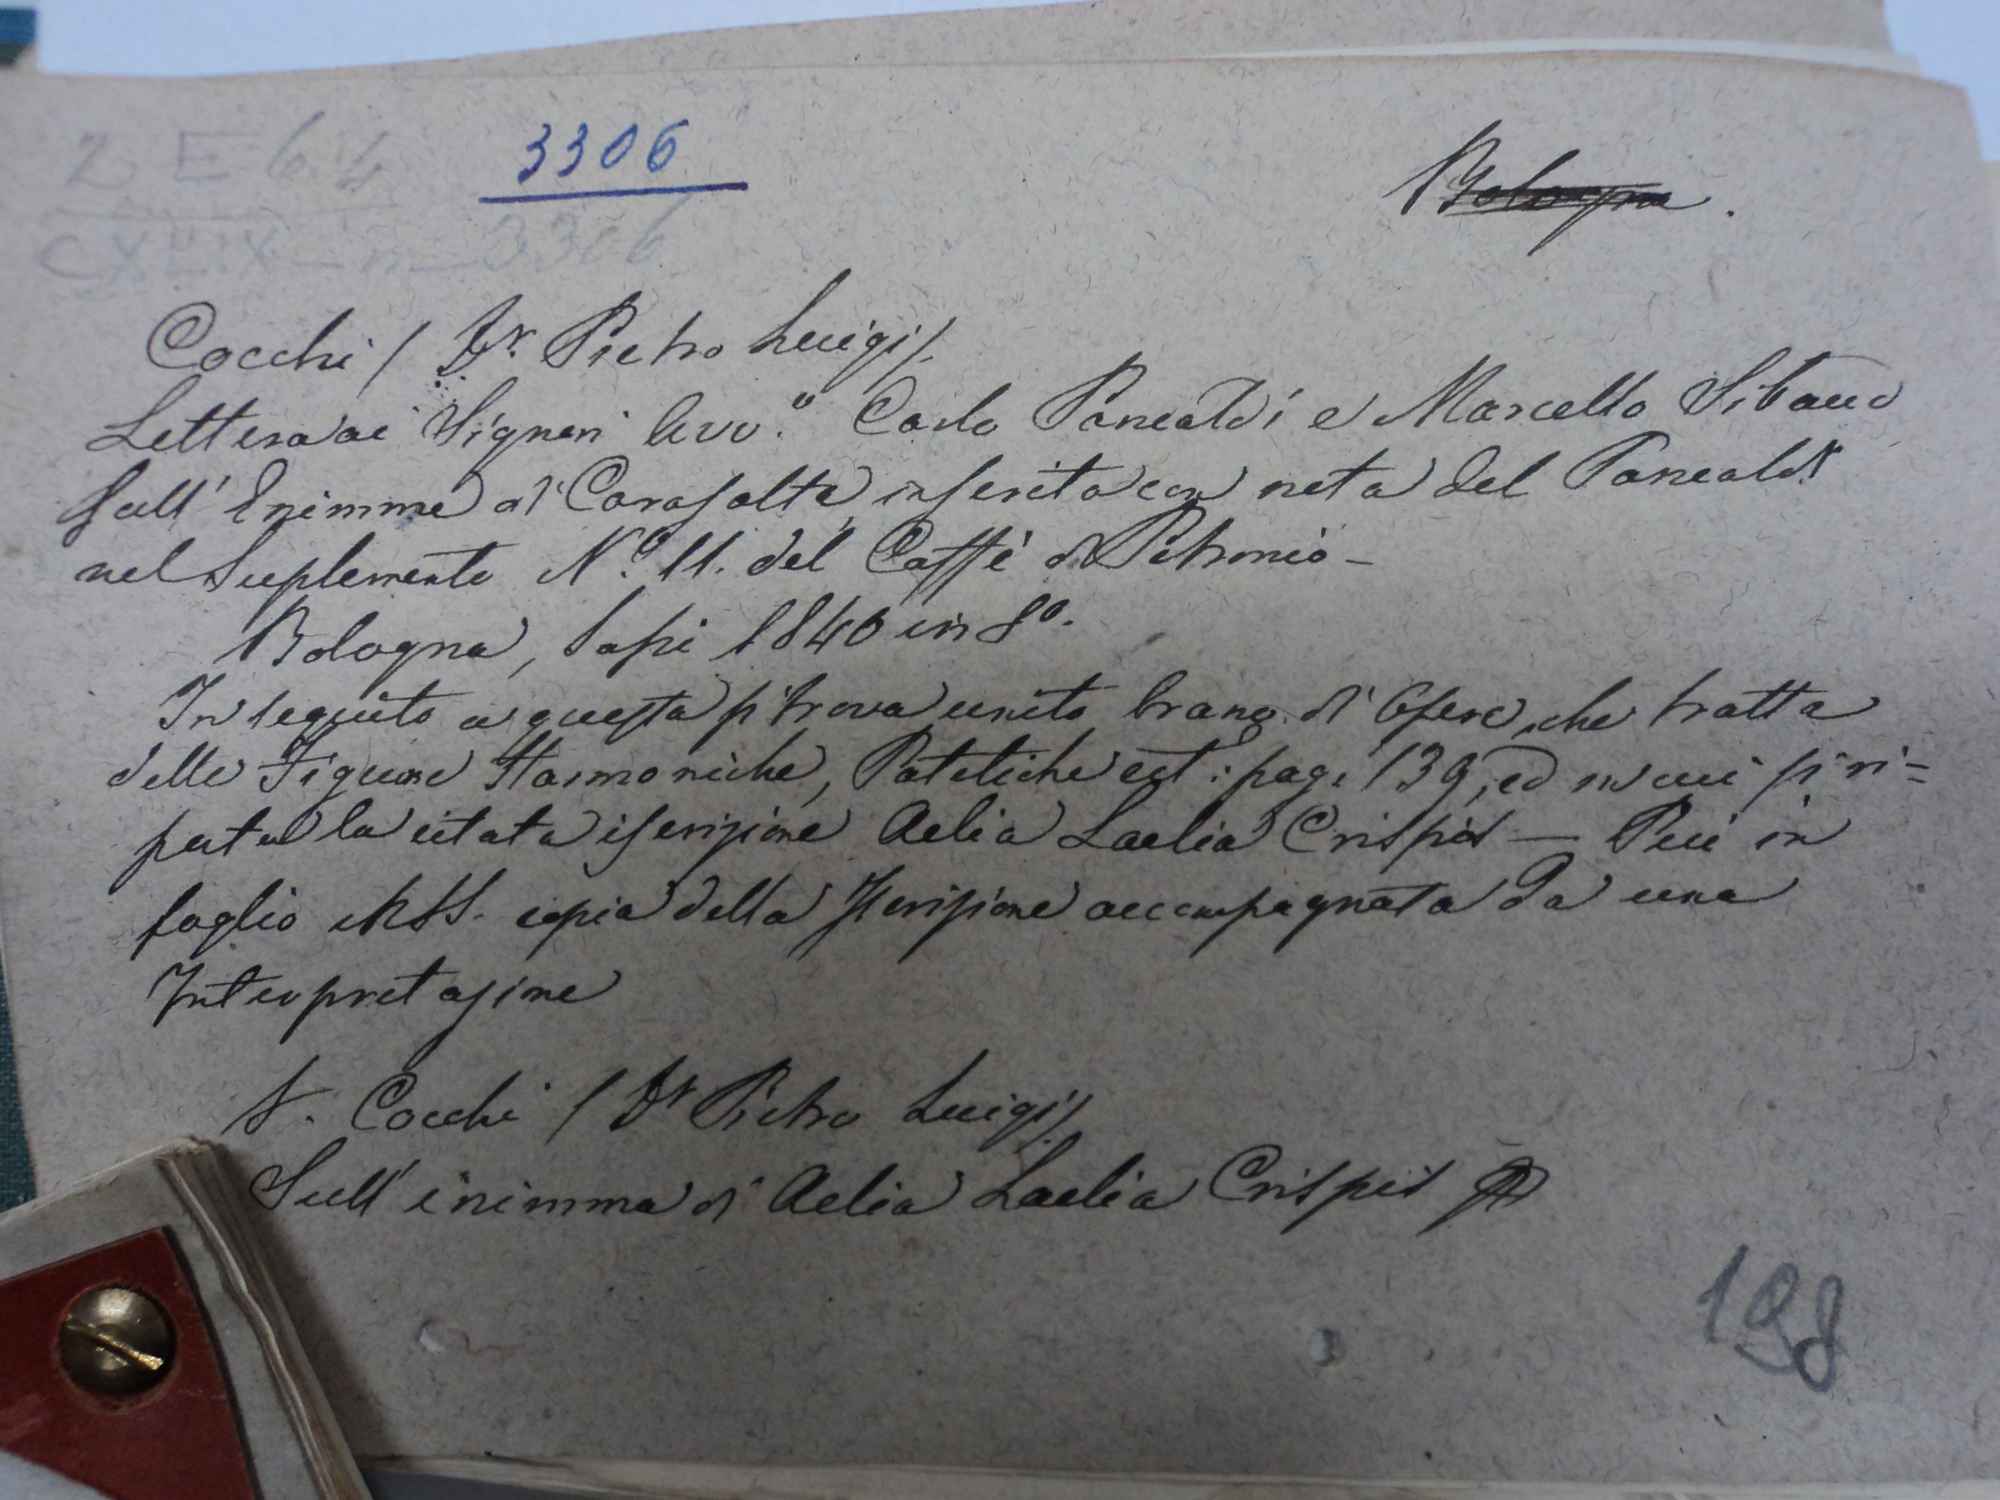 2 E 6.4
3306
Bologna.
3306
Cocchi / Dr. Pietro Luigi /.
Lettera ai Signori Avv.ti Carlo Pancaldi e Marcello Sibaud
sull'Enimma di Casaralta, inserita con nota del Pancaldi
nel Suplemento N.° 11. del Caffè di Petronio –
Bologna, Sassi 1846 in 8°.
In seguito a questa si trova unito brano di Opere, che tratta
delle Figure Harmoniche, Patetiche ect: pag. 139, ed in cui si ri=
porta la citata iscrizione Aelia Laelia Crispis — Più in
foglio MSS. copia della Iscrizione accompagnata da una
Interpretazione
V. Cocchi / Dr Pietro Luigi /.
Sull'enimma di Aelia Laelia Crispis
198